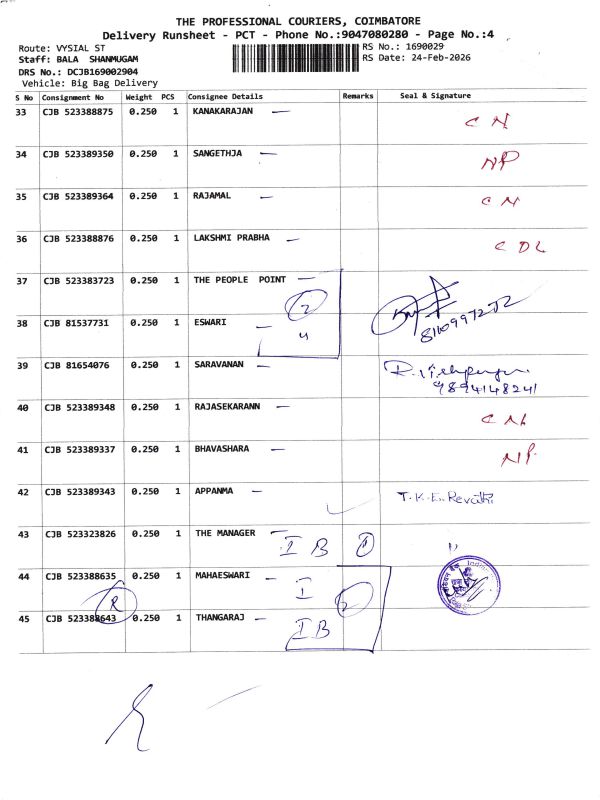 THE PROFESSIONAL COURIERS, COIMBATORE
Delivery Runsheet - PCT - Phone No.:9047080280 - Page No.:4
Route: VYSIAL ST
RS No.: 1690029
Staff: BALA SHANMUGAM
RS Date: 24-Feb-2026
DRS No.: DCJB169002904
Vehicle: Big Bag Delivery
S No Consignment No Weight PCS Consignee Details Remarks Seal & Signature
33 CJB 523388875 0.250 1 KANAKARAJAN — C N
34 CJB 523389350 0.250 1 SANGETHJA — NP
35 CJB 523389364 0.250 1 RAJAMAL — C N
36 CJB 523388876 0.250 1 LAKSHMI PRABHA — C D L
37 CJB 523383723 0.250 1 THE PEOPLE POINT —
2
38 CJB 81537731 0.250 1 ESWARI —
4
39 CJB 81654076 0.250 1 SARAVANAN —
9894148241
40 CJB 523389348 0.250 1 RAJASEKARANN —
41 CJB 523389337 0.250 1 BHAVASHARA — NP
42 CJB 523389343 0.250 1 APPANMA — T.K.E. Revathi
43 CJB 523323826 0.250 1 THE MANAGER — I B 1
44 CJB 523388635 0.250 1 MAHAESWARI — I 2
R
45 CJB 523388643 0.250 1 THANGARAJ — IB